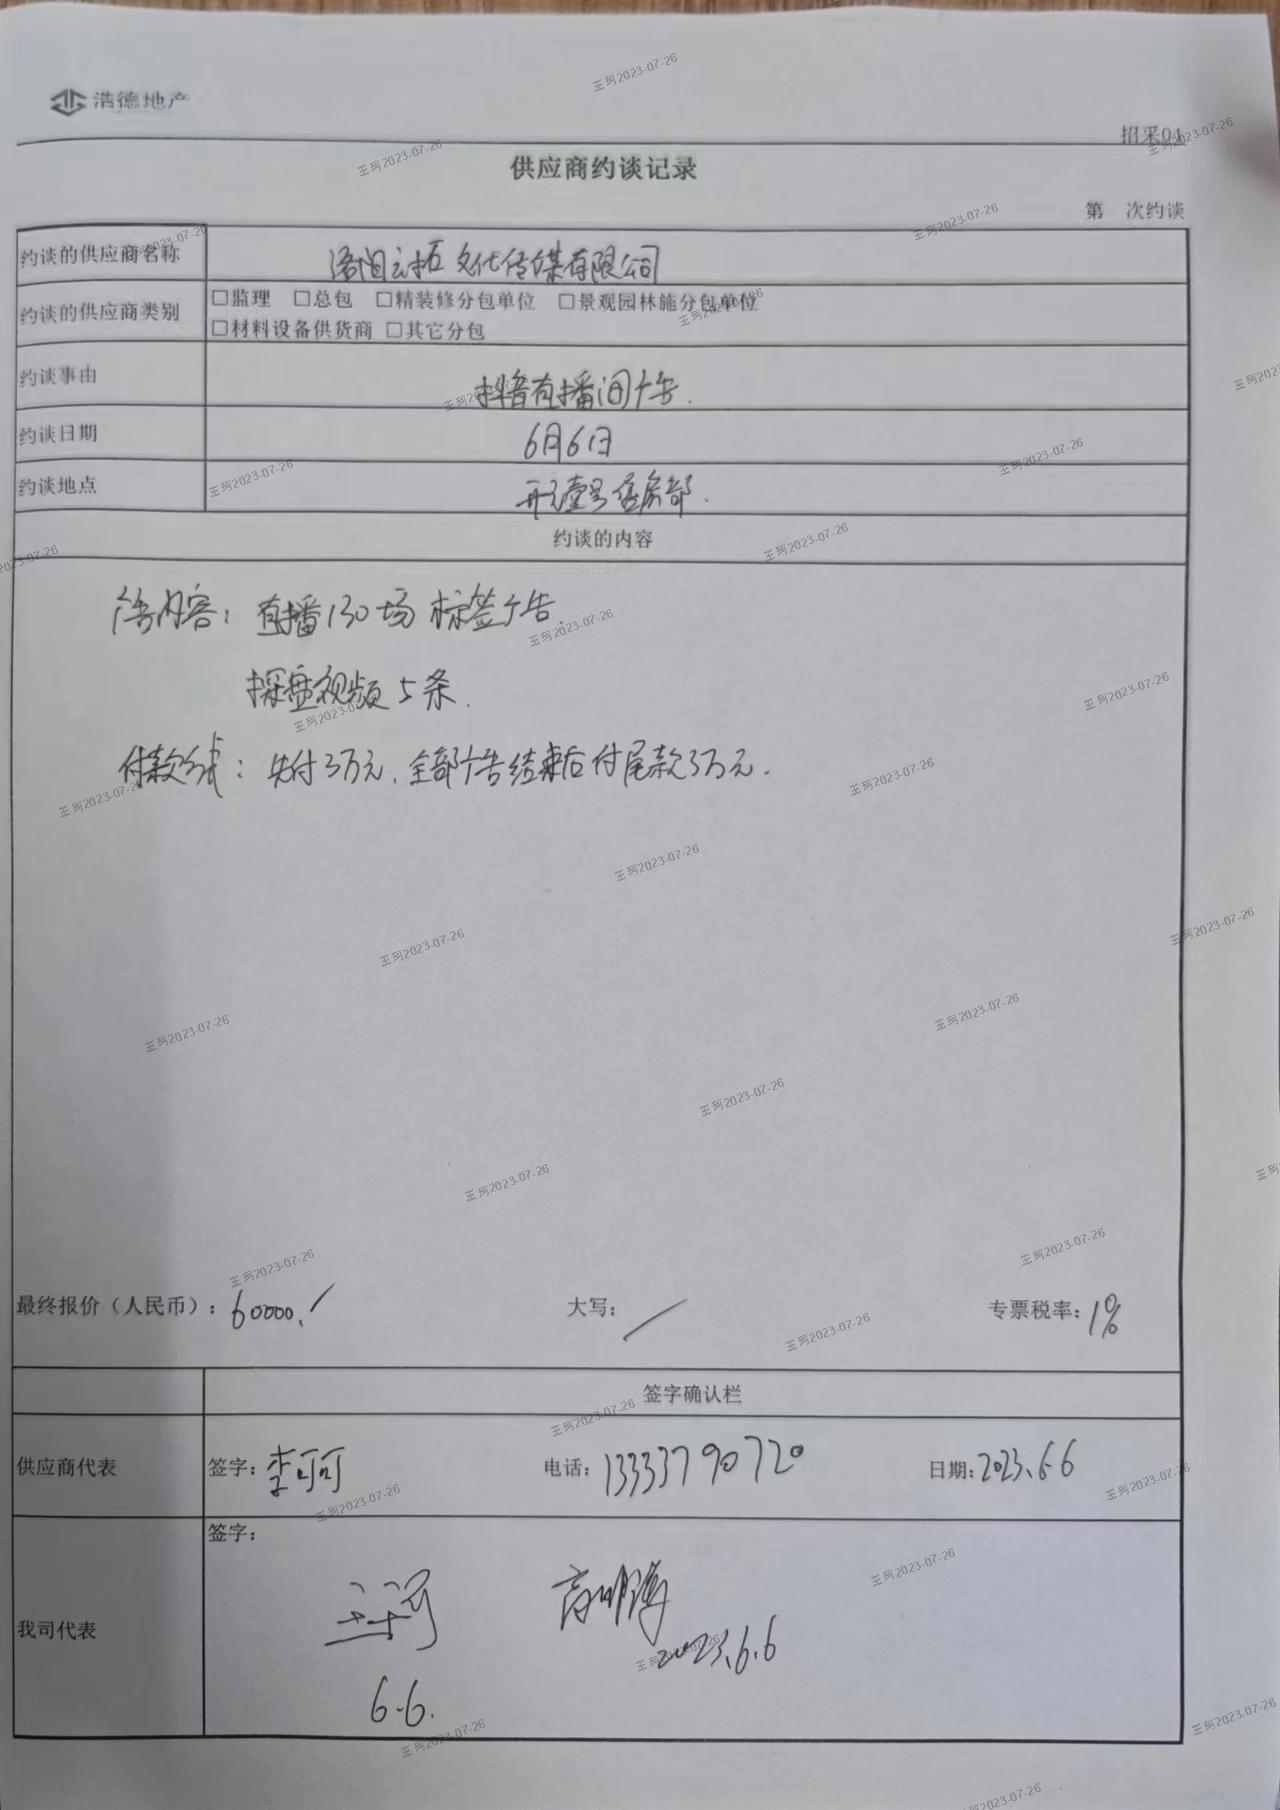 浩德地产
招采01
供应商约谈记录
第 次约谈
约谈的供应商名称 洛阳云拓文化传媒有限公司
约谈的供应商类别 □监理 □总包 □精装修分包单位 □景观园林施分包单位
□材料设备供货商 □其它分包
约谈事由 抖音直播间广告.
约谈日期 6月6日
约谈地点 开元壹号售房部.
约谈的内容
广告内容: 直播130场 标签广告.
探盘视频5条.
付款方式: 先付3万元.全部广告结束后付尾款3万元.
最终报价（人民币）: 60000. 大写: 专票税率: 1%
签字确认栏
供应商代表 签字: 李可可 电话: 13333790720 日期: 2023.6.6
我司代表 签字:
王珂 高明博
2023.6.6
6.6.
王珂2023-07-26